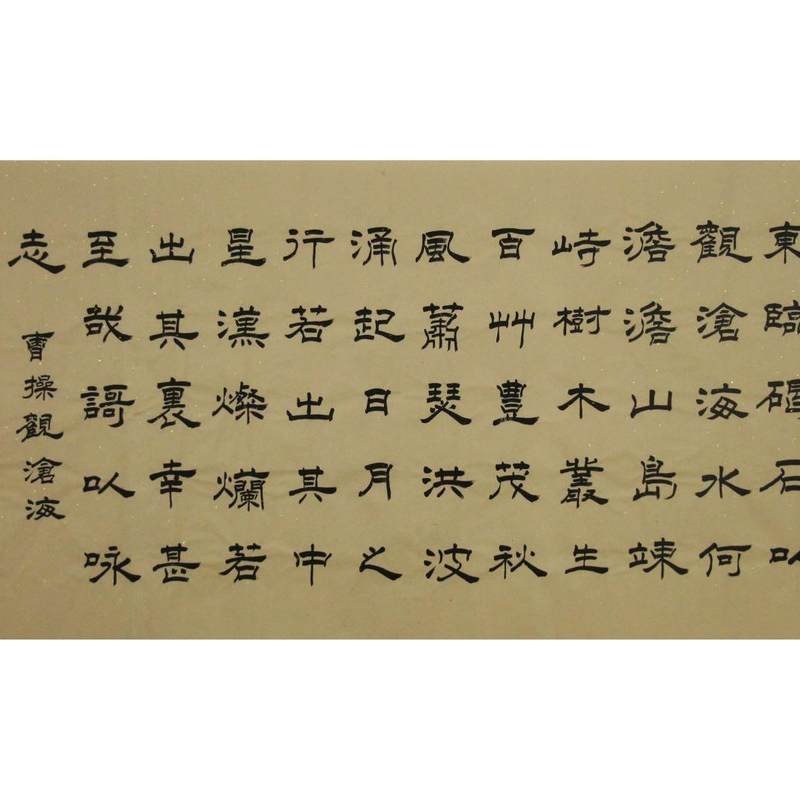 東臨碣石㕥
觀滄海水何
澹澹山島竦
峙樹木叢生
百艸豐茂秋
風蕭瑟洪波
涌起日月之
行若出其中
星漢燦爛若
出其裏幸甚
至哉謌㕥咏
志
曹操觀滄海